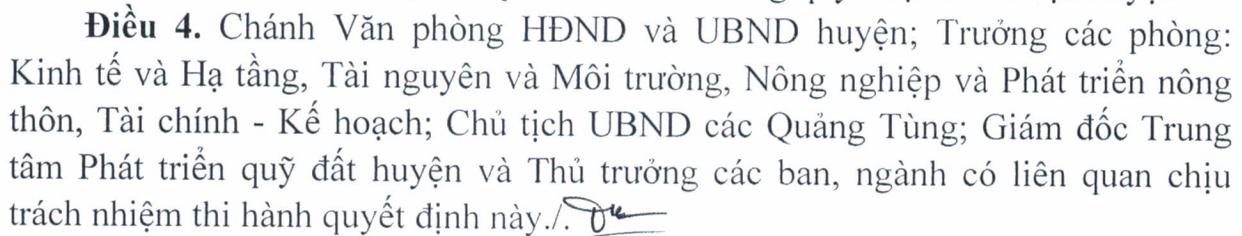 Điều 4. Chánh Văn phòng HĐND và UBND huyện; Trưởng các phòng:
Kinh tế và Hạ tầng, Tài nguyên và Môi trường, Nông nghiệp và Phát triển nông
thôn, Tài chính - Kế hoạch; Chủ tịch UBND các Quảng Tùng; Giám đốc Trung
tâm Phát triển quỹ đất huyện và Thủ trưởng các ban, ngành có liên quan chịu
trách nhiệm thi hành quyết định này./.